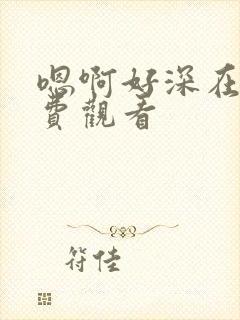 嗯啊好深在
費觀看
符佳